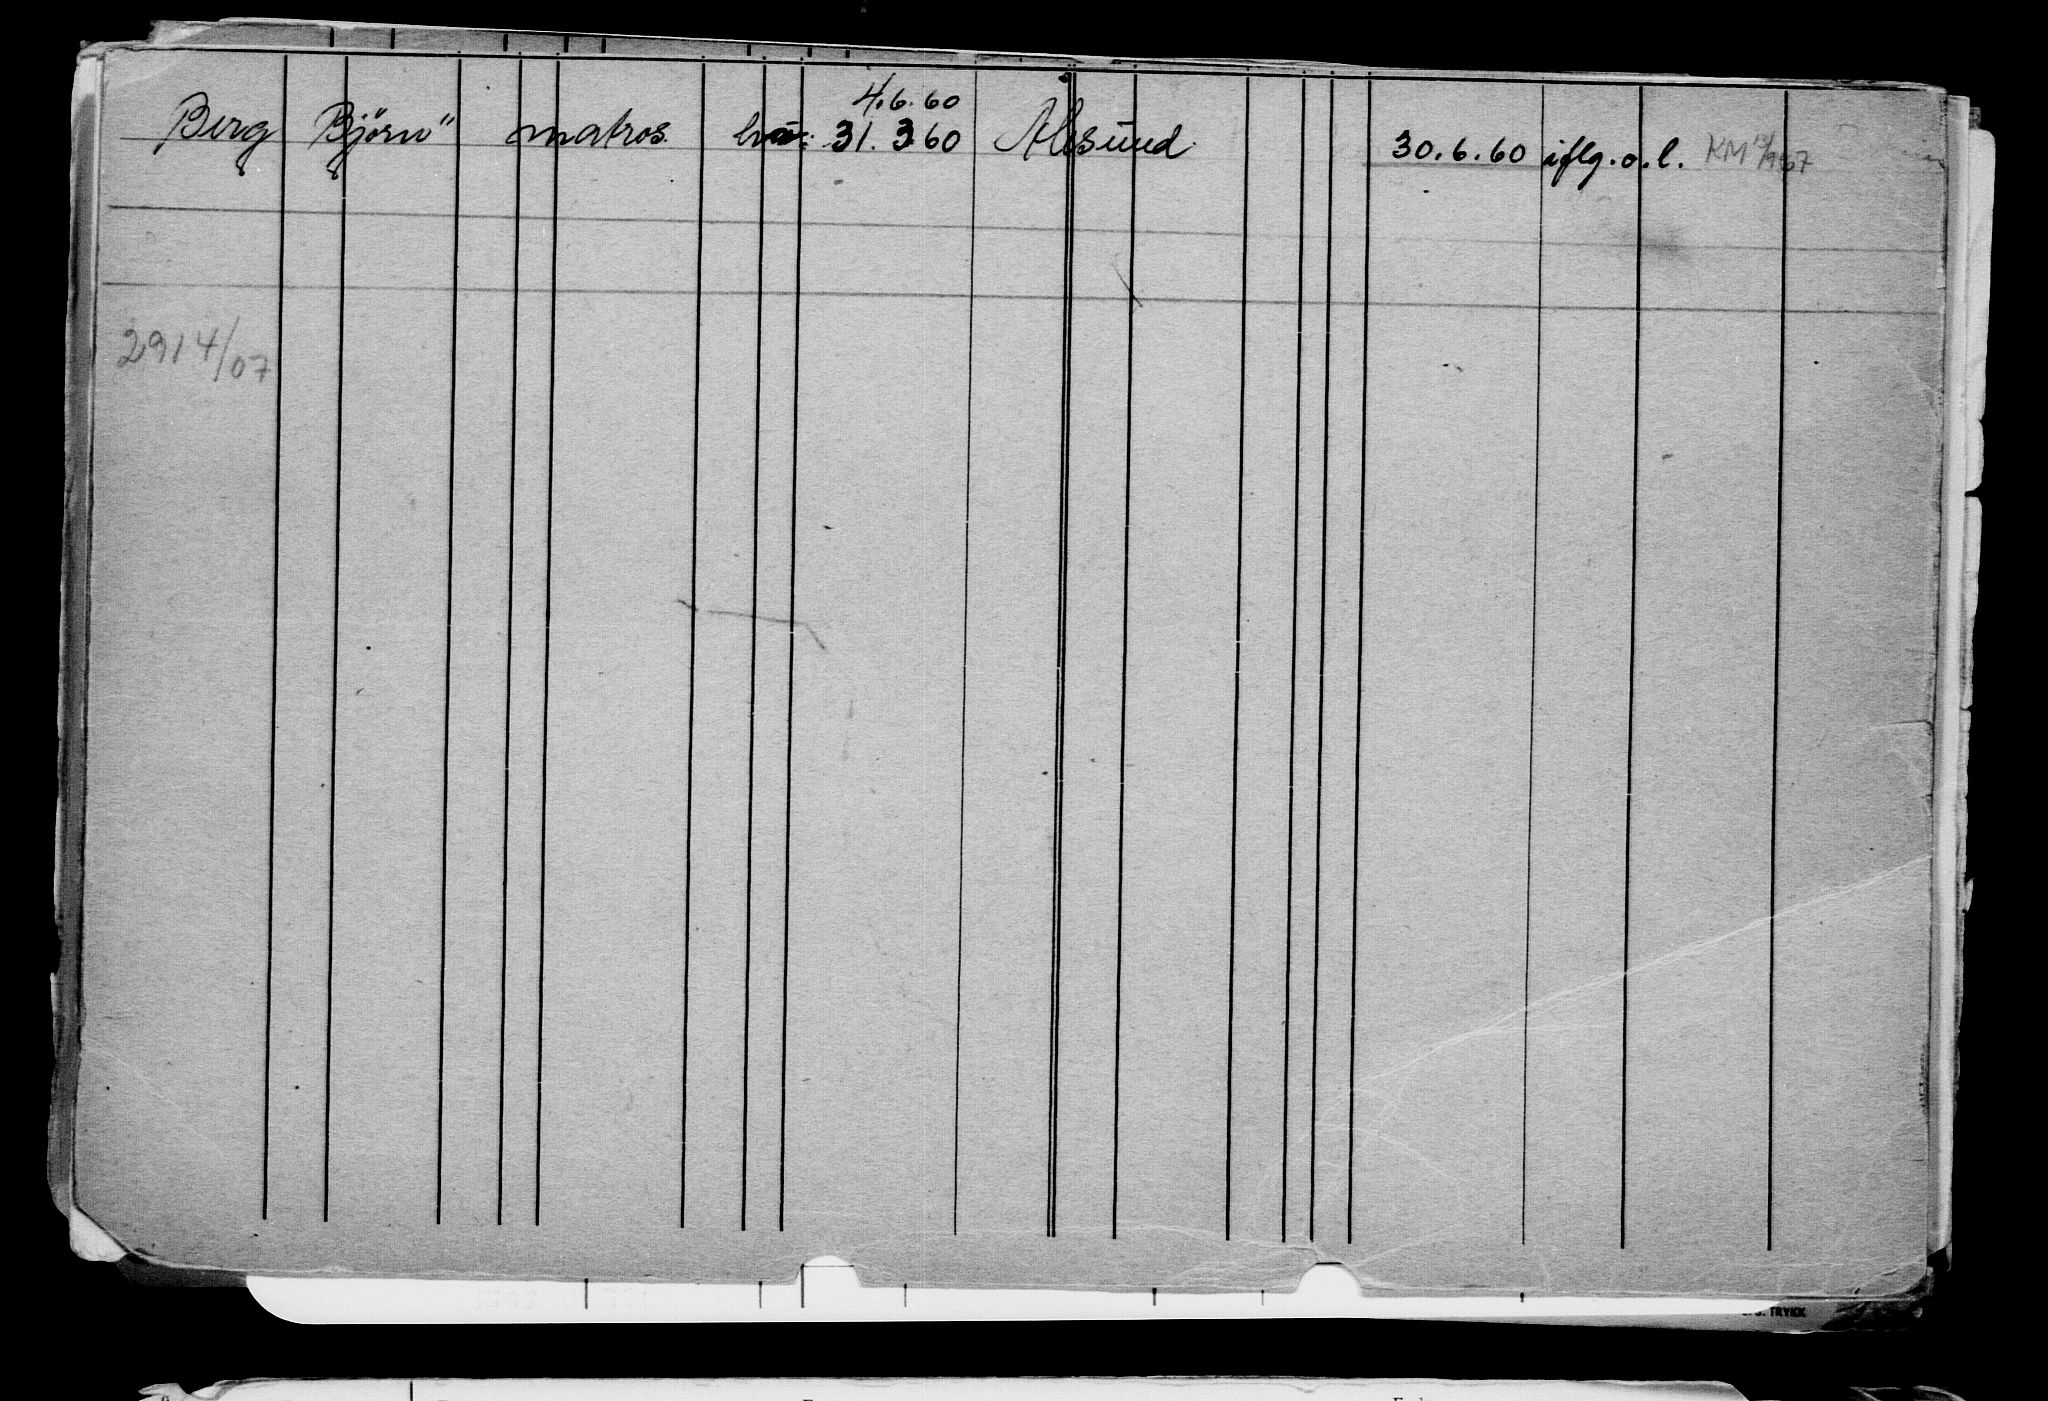 4.6.60
Berg Björn" matros. 31.3.60 Ålesund 30.6.60 iflg.o.l. KM
2914/07
TRYKK